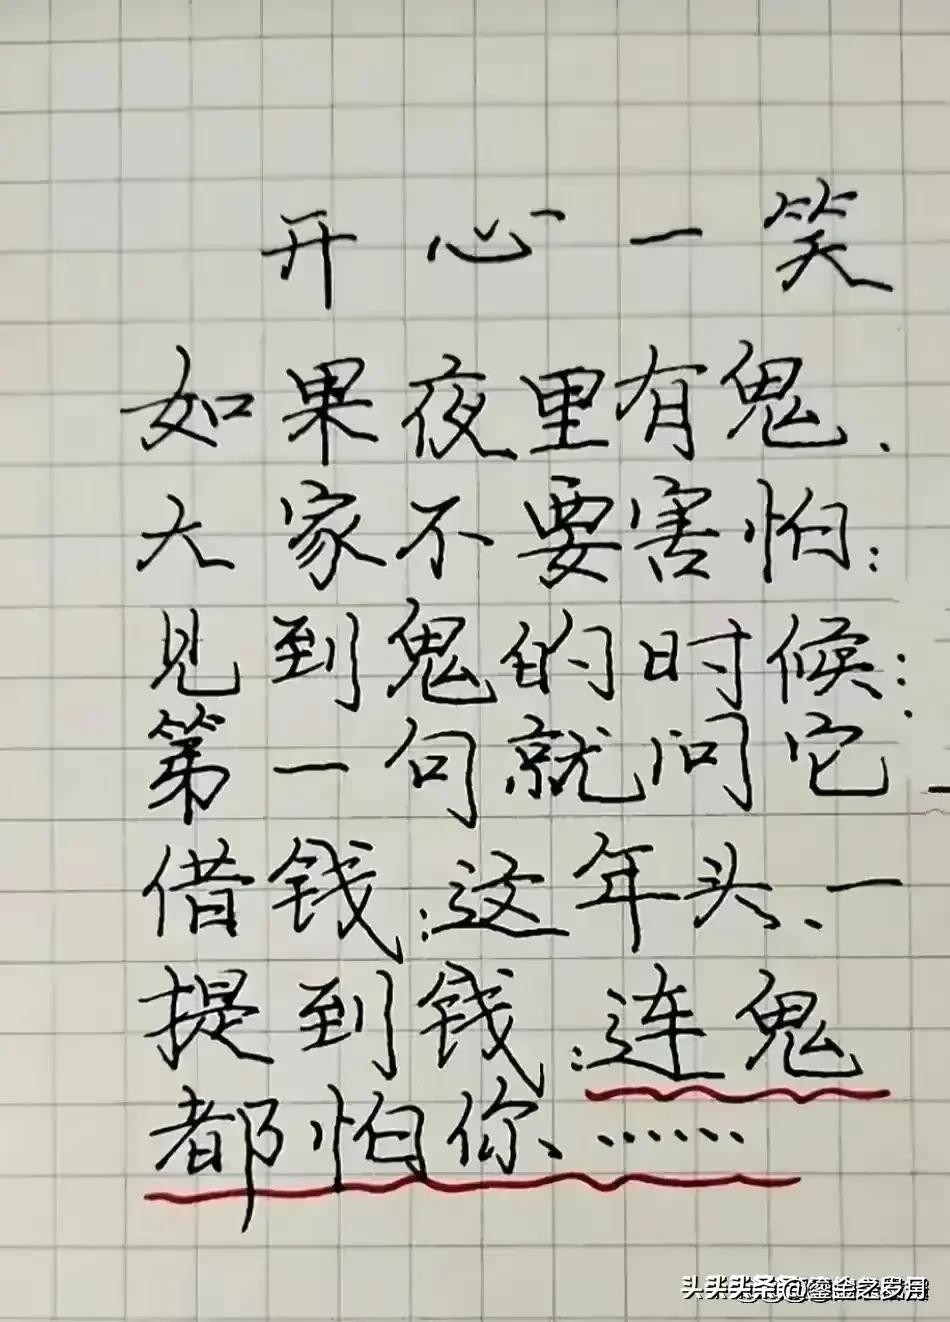 开心一笑
如果夜里有鬼.
大家不要害怕:
见到鬼的时候:
第一句就问它
借钱:这年头、一
提到钱:连鬼
都怕你、......